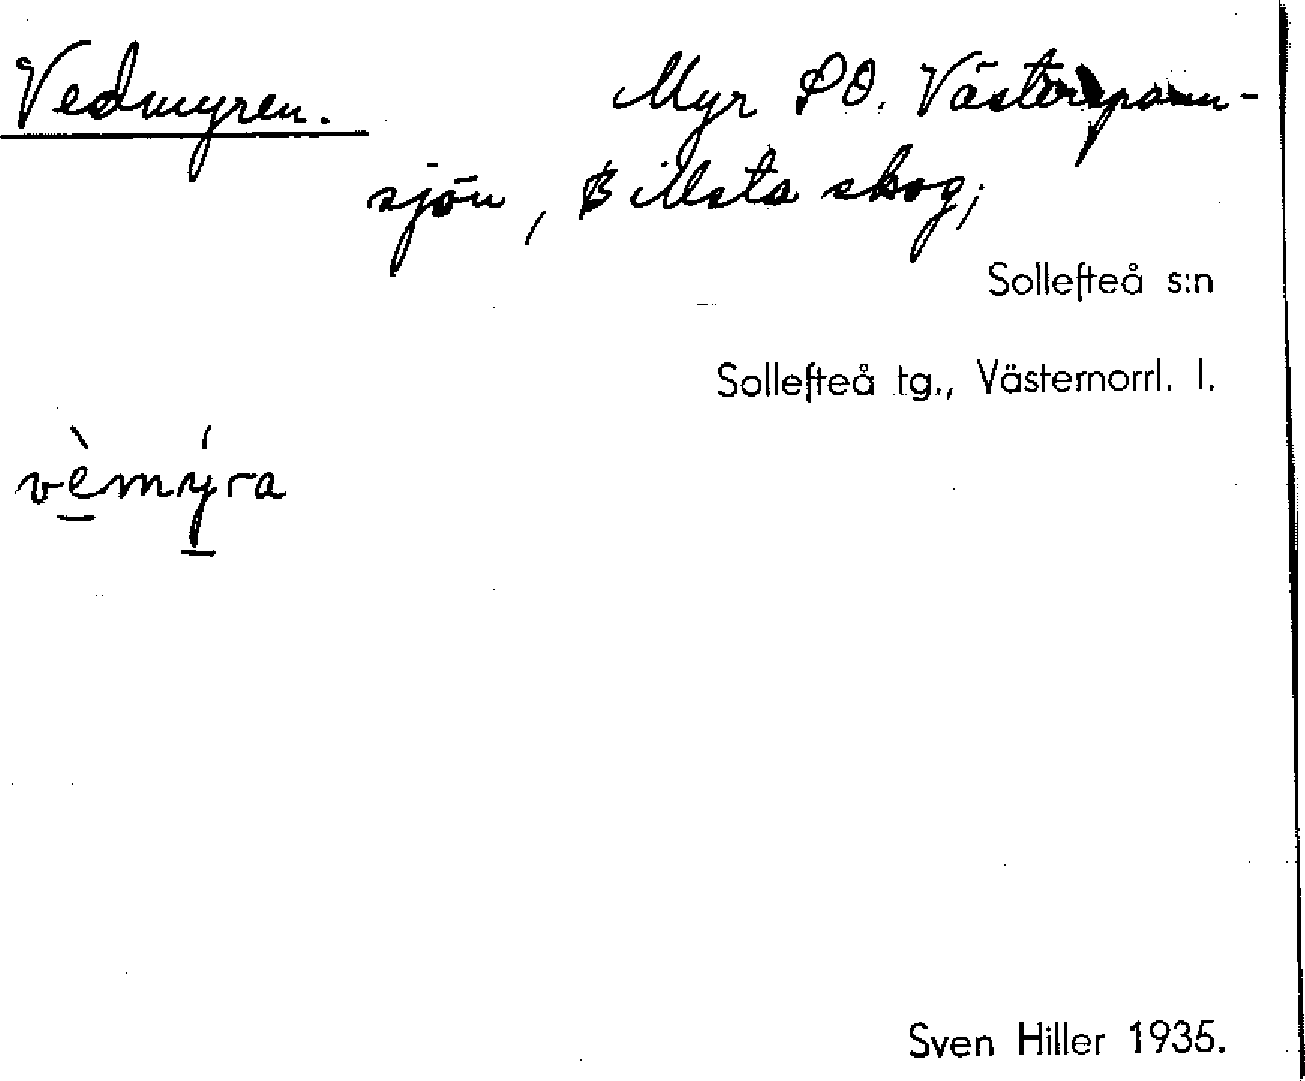 Vedmyren. Myr SO. Västerspann-
sjön, Billsta skog;
Sollefteå s:n
Sollefteå tg., Västernorrl. l.
vèmýra
Sven Hiller 1935.